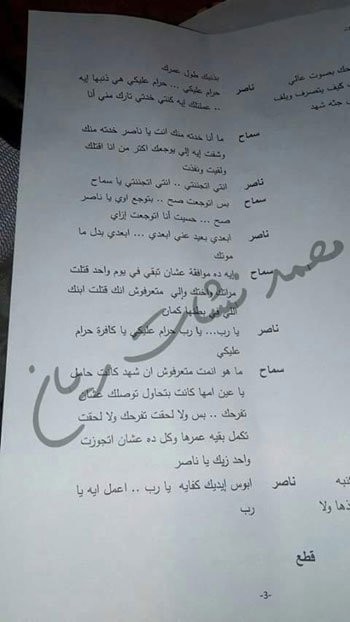 بذنبك طول عمرك
ناصر حرام عليكي ... حرام عليكي هي ذنبها إيه
.. عملتلك إيه كنتي خدتي تارك مني أنا
سماح ما أنا خدته منك أنت يا ناصر خدته منك
وشفت إيه إلي يوجعك اكتر من انا اقتلك
ولقيت ونفذت
ناصر انتي اتجننتي .. انتي اتجننتي يا سماح
سماح بس اتوجعت صح .. بتوجع اوي يا ناصر
صح ... حسيت أنا اتوجعت إزاي
ناصر ابعدي بعيد عني ابعدي ... ابعدي بدل ما
موتك
سماح إيه ده موافقة عشان تبقي في يوم واحد قتلت
مراتك واختك وإلي متعرفوش انك قتلت ابنك
اللي في بطنها كمان
ناصر يا رب... يا رب حرام عليكي يا كافرة حرام
عليكي
سماح ما هو انت متعرفوش ان شهد كانت حامل
يا عين امها كانت بتحاول توصلك عشان
تفرحك .. بس ولا لحقت تفرحك ولا لحقت
تكمل بقيه عمرها وكل ده عشان اتجوزت
واحد زيك يا ناصر
ناصر ابوس إيديك كفايه يا رب .. اعمل ايه يا
رب
قطع
-3-
حك بصوت عالي
كيف يتصرف ويلف
جثه شهد
ذها ولا
محمد